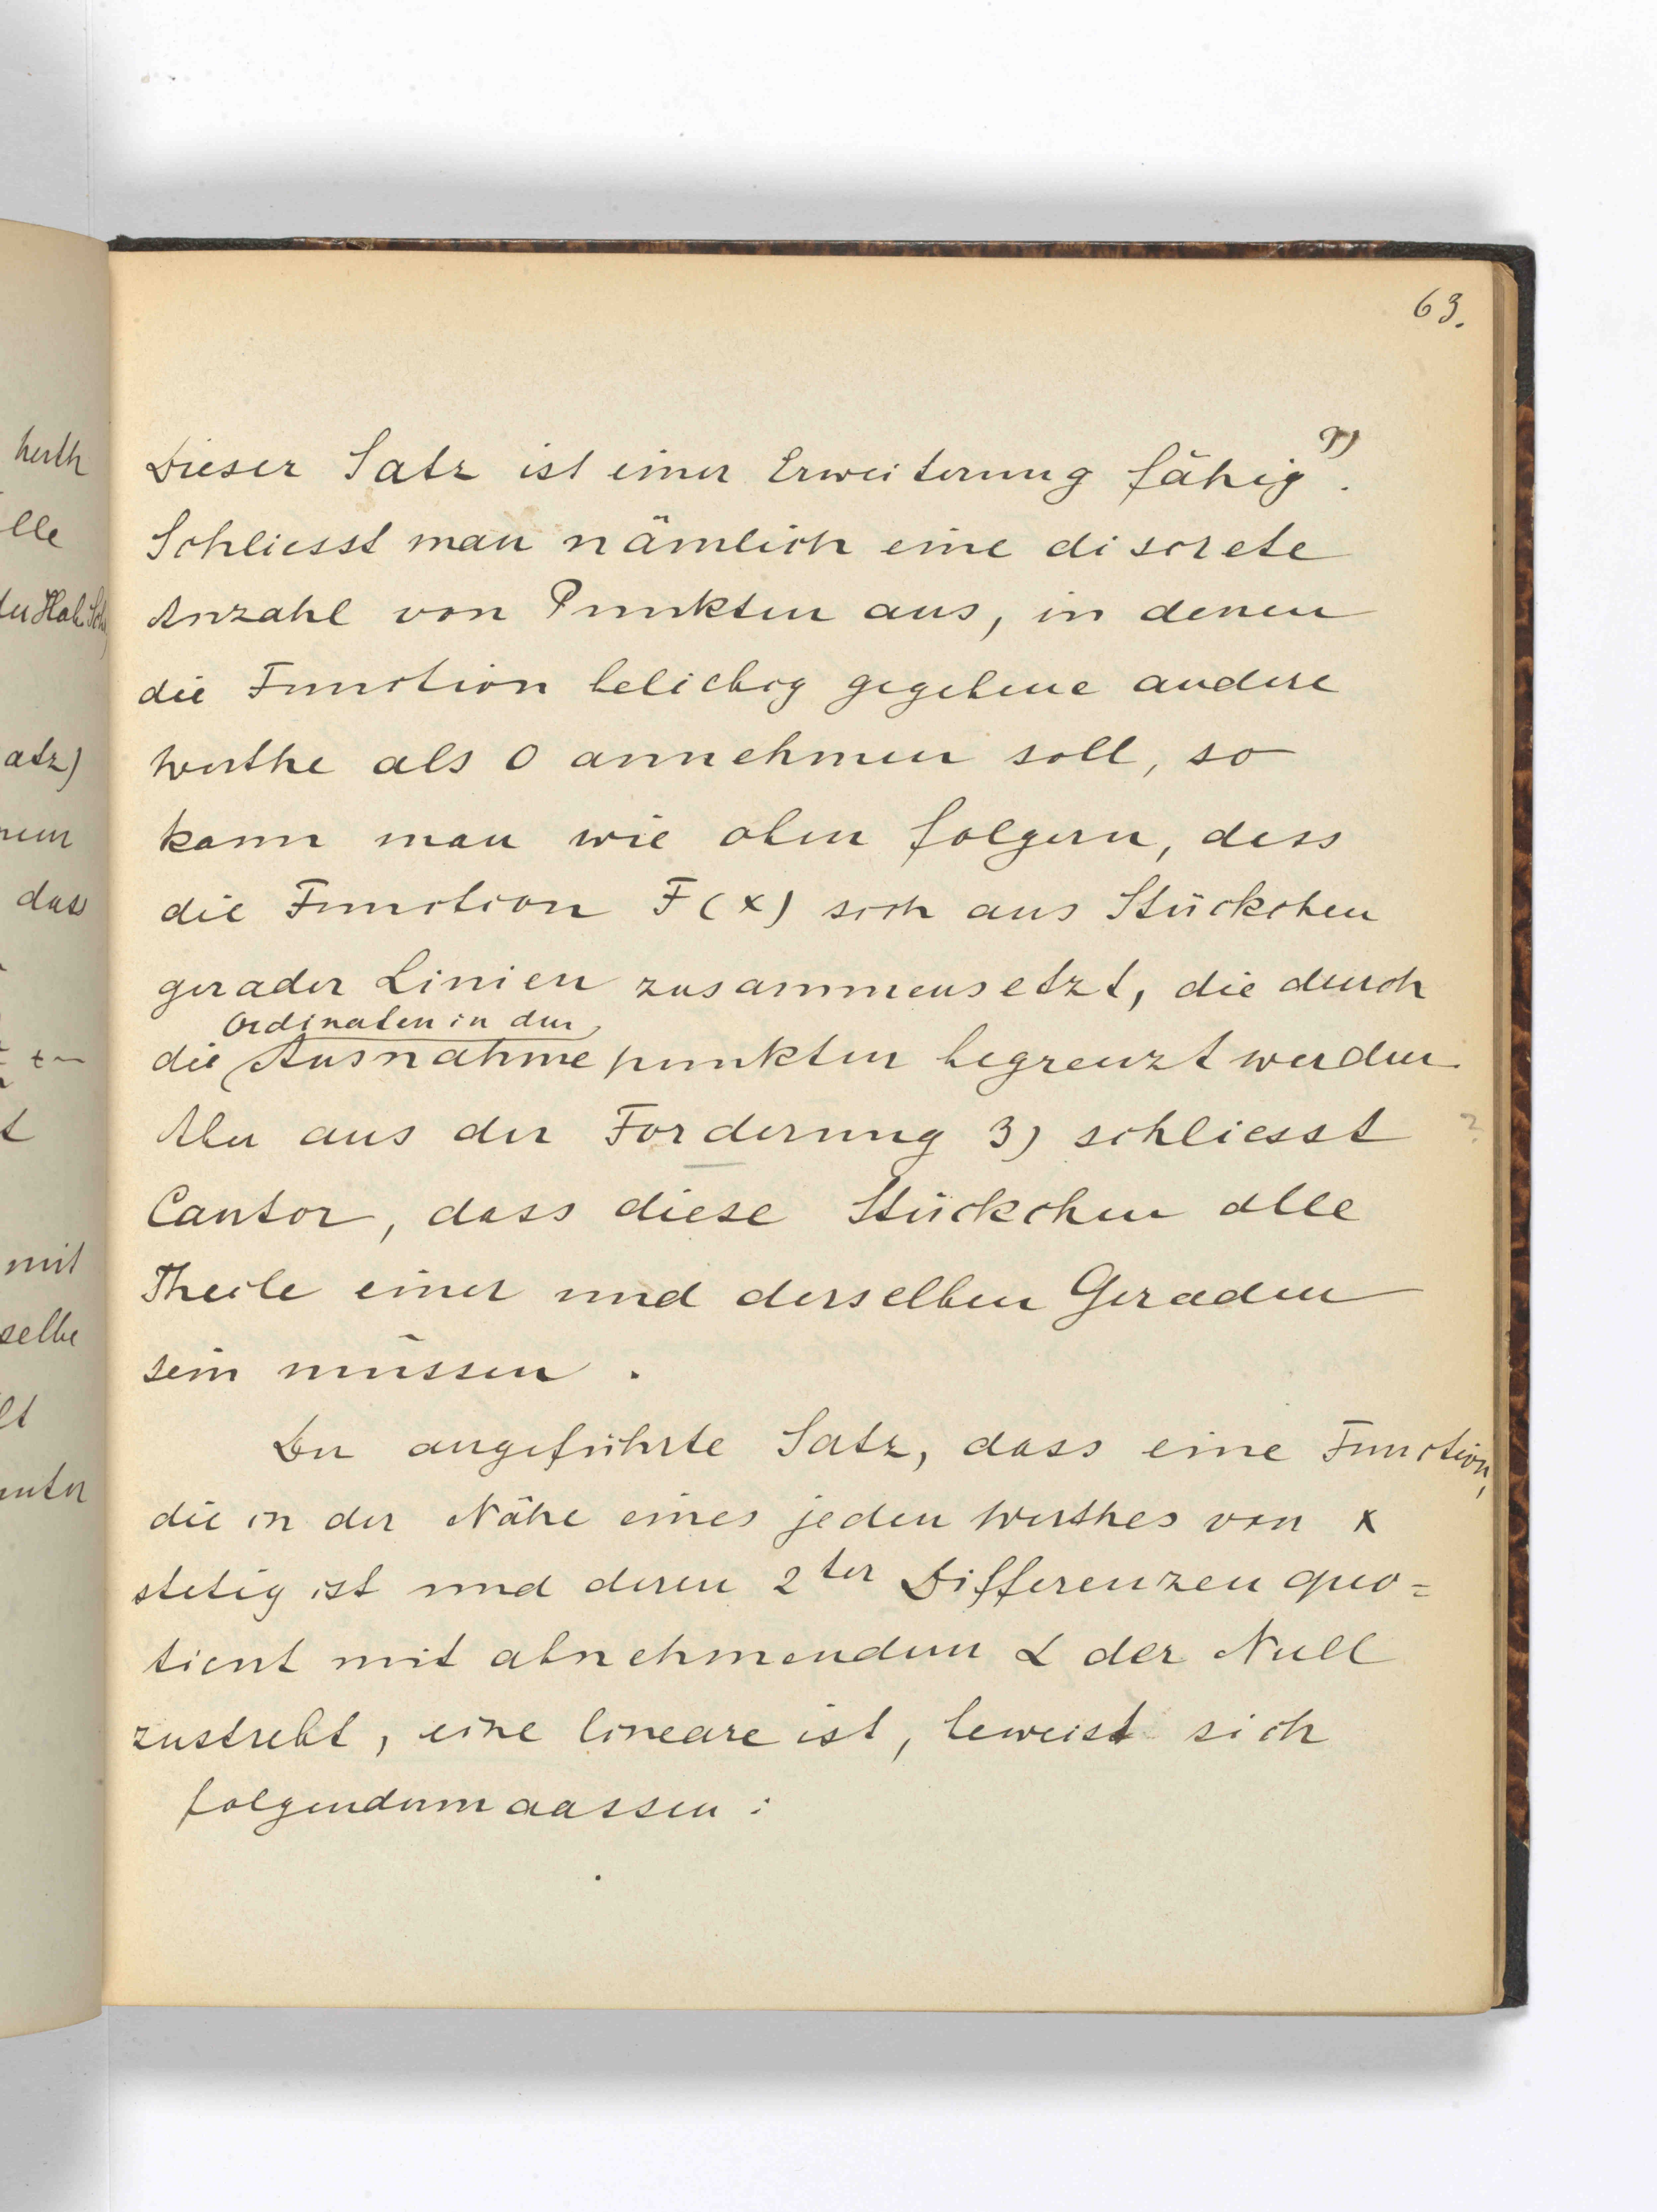 63.
Dieser Satz ist einer Erweiterung fähig 9).
Schliesst man nämlich eine discrete
Anzahl von Punkten aus, in denen
die Function beliebig gegebene andere
Werthe als 0 annehmen soll, so
kann man wie oben folgern, dass
die Function F(x) sich aus Stückchen
gerader Linien zusammensetzt, die durch
Ordinaten in den
die Ausnahmepunkten begrenzt werden.
Aber aus der Forderung 3) schliesst ?
Cantor, dass diese Stückchen alle
Theile einer und derselben Geraden
sein müssen.
Der angeführte Satz, dass eine Function,
die in der Nähe eines jeden Werthes von x
stetig ist und deren 2ter Differenzenquo=
tient mit abnehmendem α der Null
zustrebt, eine lineare ist, beweist sich
folgendermaassen:
herth
lle
atz)
dass
mit
selbe